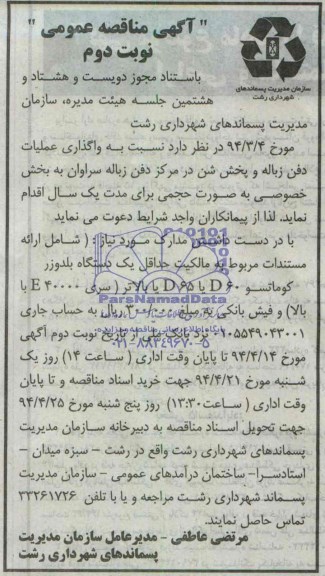 " آگهی مناقصه عمومی "
نوبت دوم
سازمان مدیریت پسماندهای
شهرداری رشت
باستناد مجوز دویست و هشتاد و
هشتمین جلسه هیئت مدیره، سازمان
مدیریت پسماندهای شهرداری رشت
مورخ ۹۴/۳/۴ در نظر دارد نسبت به واگذاری عملیات
دفن زباله و پخش شن در مرکز دفن زباله سراوان به بخش
خصوصی به صورت حجمی برای مدت یک سال اقدام
نماید. لذا از پیمانکاران واجد شرایط دعوت می نماید
با در دست داشتن مدارک مورد نیاز : ( شامل ارائه
مستندات مربوط به مالکیت حداقل یک دستگاه بلدوزر
کوماتسو D ۶۰ یا D ۶۵ یا بالاتر ( سری E ۴۰۰۰۰ یا
بالا) و فیش بانکی به مبلغ ریال به حساب جاری
۰۱۰۵۵۴۹۰۴۳۰۰۱ نزد بانک ملی از تاریخ نوبت دوم آگهی
مورخ ۹۴/۴/۱۴ تا پایان وقت اداری ( ساعت ۱۴) روز یک
شنبه مورخ ۹۴/۴/۲۱ جهت خرید اسناد مناقصه و تا پایان
وقت اداری ( ساعت ۱۳:۳۰) روز پنج شنبه مورخ ۹۴/۴/۲۵
جهت تحویل اسناد مناقصه به دبیرخانه سازمان مدیریت
پسماندهای شهرداری رشت واقع در رشت – سبزه میدان –
استادسرا– ساختمان درآمدهای عمومی – سازمان مدیریت
پسماند شهرداری رشت مراجعه و یا با تلفن ۳۳۲۶۱۷۲۶
تماس حاصل نمایند.
مرتضی عاطفی – مدیرعامل سازمان مدیریت
پسماندهای شهرداری رشت
ParsNamadData
۰۲۱-۸۸۳۴۹۶۷۰-۵